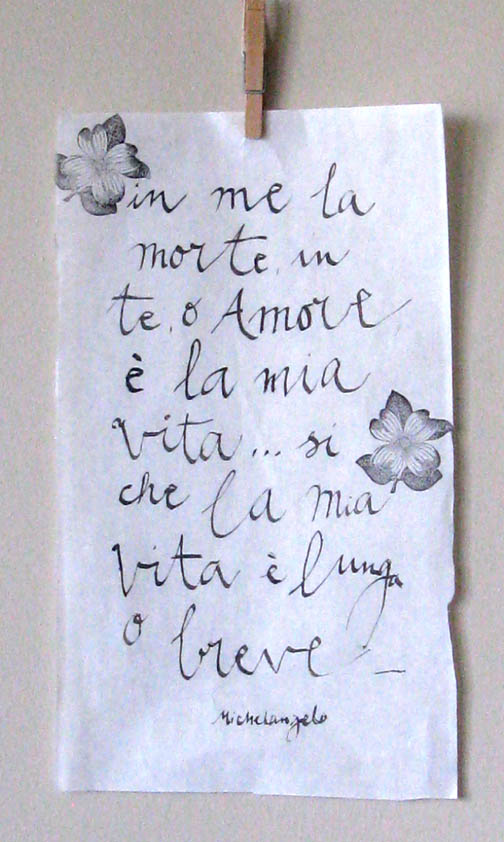 in me la
morte, in
te, o Amore
è la mia
vita... si
che la mia
vita è lunga
o breve -
Michelangelo